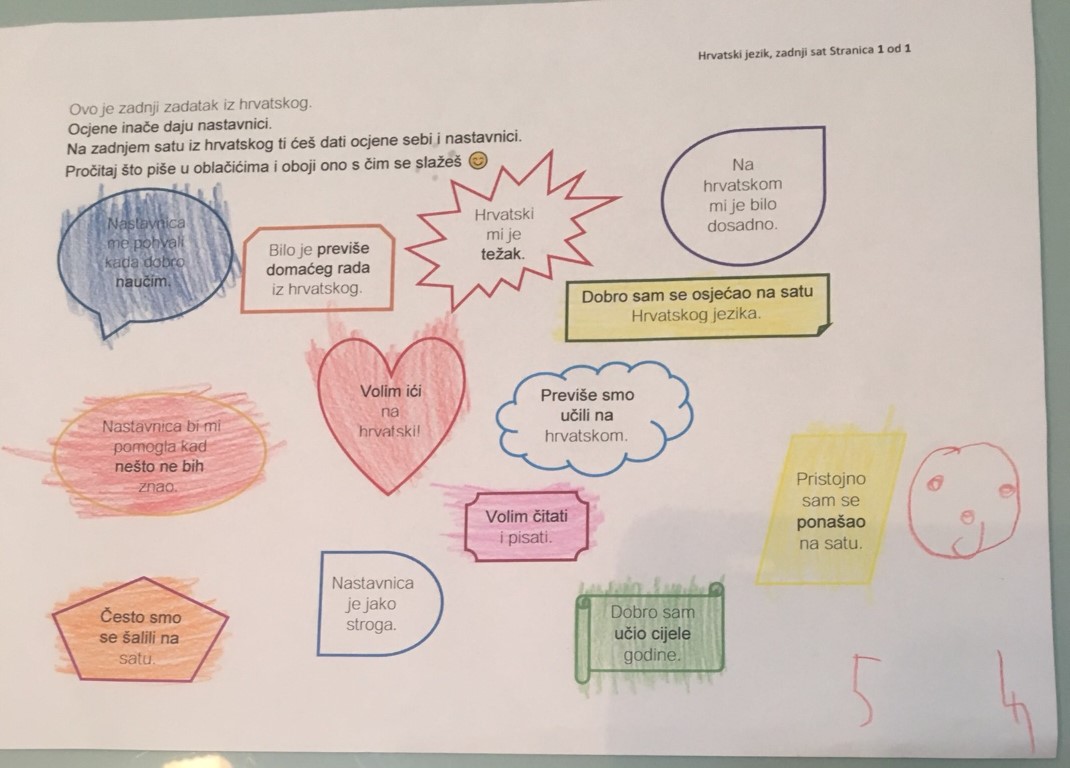 Hrvatski jezik, zadnji sat Stranica 1 od 1
Ovo je zadnji zadatak iz hrvatskog.
Ocjene inače daju nastavnici.
Na zadnjem satu iz hrvatskog ti ćeš dati ocjene sebi i nastavnici.
Pročitaj što piše u oblačićima i oboji ono s čim se slažeš 😊
Nastavnica
me pohvali
kada dobro
naučim.
Bilo je previše
domaćeg rada
iz hrvatskog.
Hrvatski
mi je
težak.
Na
hrvatskom
mi je bilo
dosadno.
Dobro sam se osjećao na satu
Hrvatskog jezika.
Nastavnica bi mi
pomogla kad
nešto ne bih
znao.
Volim ići
na
hrvatski!
Previše smo
učili na
hrvatskom.
Pristojno
sam se
ponašao
na satu.
Volim čitati
i pisati.
Često smo
se šalili na
satu.
Nastavnica
je jako
stroga.
Dobro sam
učio cijele
godine.
5 4